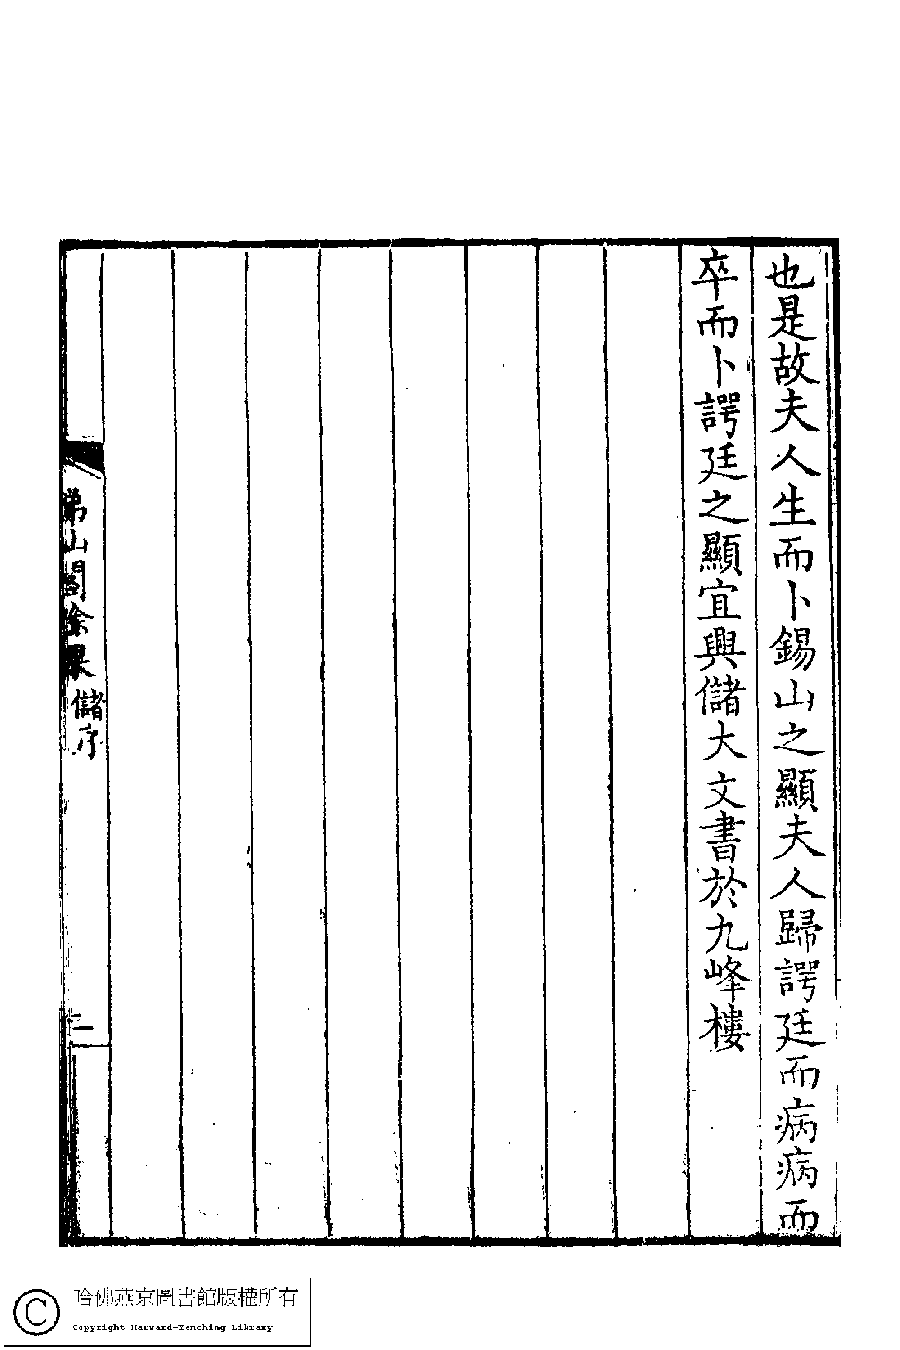 也是故夫人生而卜錫山之顯夫人歸諤廷而病病而
卒而卜諤廷之顯宜興儲大文書於九峰樓
山閣 儲序
二
哈佛燕京圖書館版權所有
Copyright Harvard-Yenching Library